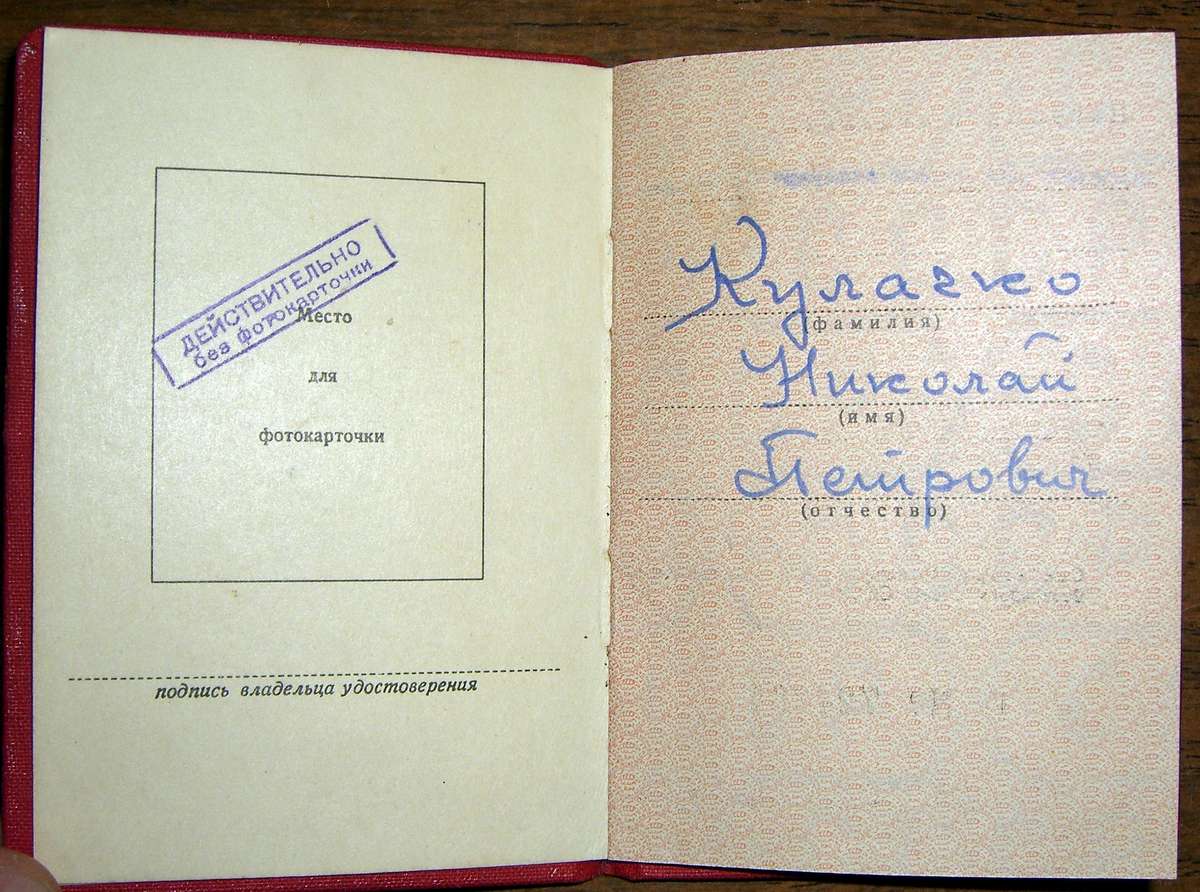 ДЕЙСТВИТЕЛЬНО
без фотокарточки
Место
для
фотокарточки
подпись владельца удостоверения
Кулачко
(фамилия)
Николай
(имя)
Петрович
(отчество)